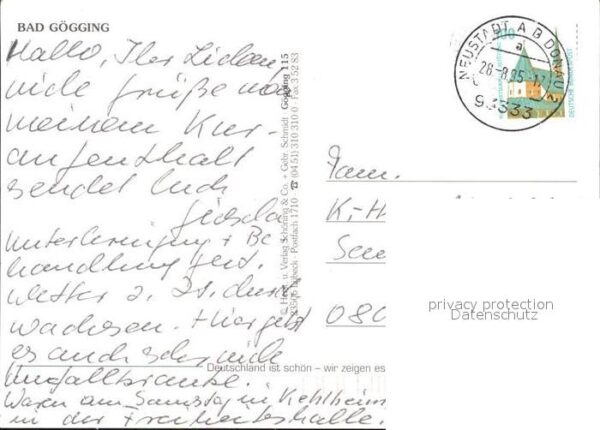 BAD GÖGGING
Hallo, Ihr Lieben,
viele Grüße von
meinem Kur-
aufenthalt
sendet Euch
Gisela
Unterbringung + Be
handlung gut.
Wetter z. Zt. durch
wachsen. Hier gibt
es auch sehr viele
Unfallkranke.
Waren am Samstag in Kehlheim
in der Freiheitshalle.
© Herst. u. Verlag Schöning & Co. + Gebr. Schmidt · Gögging 115
23505 Lübeck · Postfach 1710 ☎ (0451) 310 310 0 · Fax 3 52 83
Deutschland ist schön – wir zeigen es
NEUSTADT A D DONAU 2
a
93333
100
Fam.
K-H
See
080
privacy protection
Datenschutz